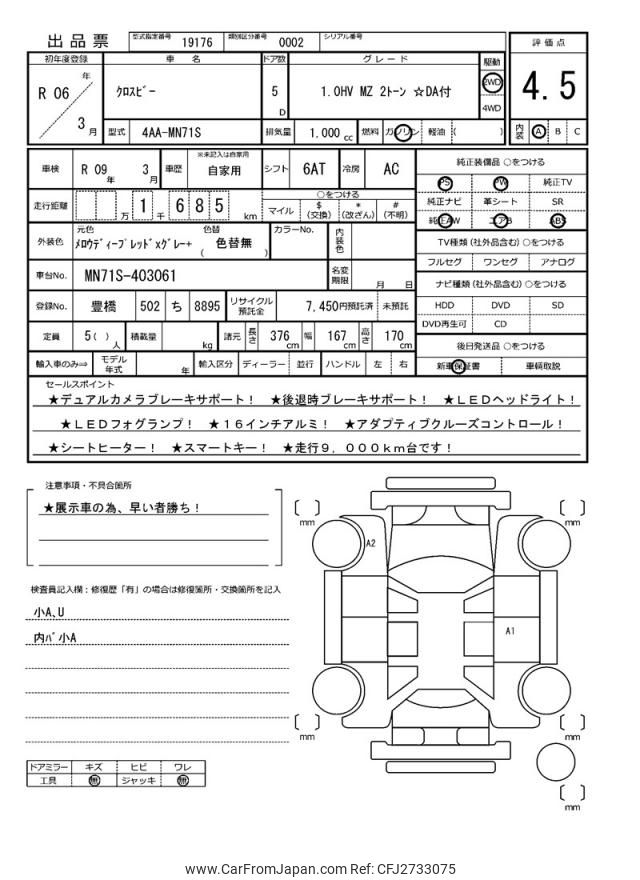 出品票
型式指定番号 19176 類別区分番号 0002 シリアル番号
評価点
4.5
内装 A B C
初年度登録 車名 ドア数 グレード 駆動
R 06 年 3 月
クロスビー 5 D 1.0HV MZ 2トーン ☆DA付 2WD 4WD
型式 4AA-MN71S 排気量 1.000 cc 燃料 ガソリン 軽油 ( )
車検 R 09 年 3 月 車歴 ※未記入は自家用 自家用 シフト 6AT 冷房 AC
走行距離 万 1 千 6 8 5 km
○をつける
マイル $ (交換) * (改ざん) # (不明)
外装色 元色 色替 カラーNo. 内装色
メロウディープレッド×グレー+ ( 色替無 )
車台No. MN71S-403061 名変期限 月 日
登録No. 豊橋 502 ち 8895 リサイクル預託金 7,450円預託済 未預託
定員 5( ) 人 積載量 kg 諸元 長さ 376 cm 幅 167 cm 高さ 170 cm
輸入車のみ⇒ モデル年式 年 輸入区分 ディーラー 並行 ハンドル 左 右
純正装備品 ○をつける
PS PW 純正TV
純正ナビ 革シート SR
純正AW エアB ABS
TV種類 (社外品含む) ○をつける
フルセグ ワンセグ アナログ
ナビ種類 (社外品含む) ○をつける
HDD DVD SD
DVD再生可 CD
後日発送品 ○をつける
新車保証書 車輌取説
セールスポイント
★デュアルカメラブレーキサポート! ★後退時ブレーキサポート! ★LEDヘッドライト!
★LEDフォグランプ! ★16インチアルミ! ★アダプティブクルーズコントロール!
★シートヒーター! ★スマートキー! ★走行9,000km台です!
注意事項・不具合箇所
★展示車の為、早い者勝ち!
検査員記入欄:修復歴「有」の場合は修復箇所・交換箇所を記入
小A、U
内バ小A
ドアミラー キズ ヒビ ワレ
工具 無 ジャッキ 無
mm
mm
A2
A1
mm
mm
mm
www.CarFromJapan.com Ref: CFJ2733075